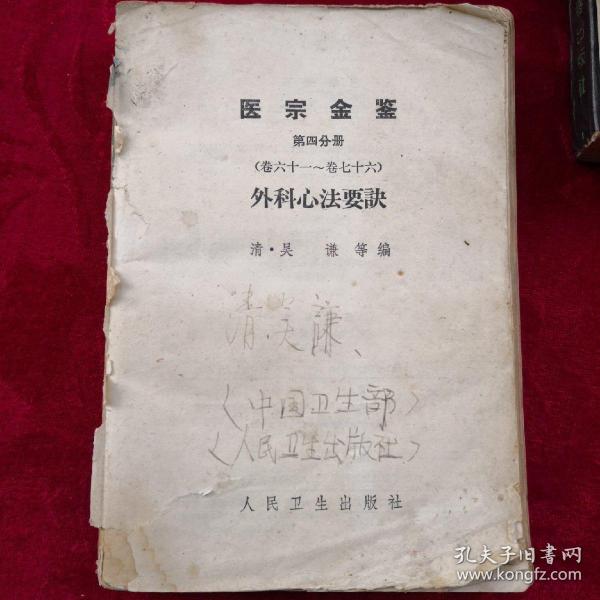 医宗金鉴
第四分册
(卷六十一～卷七十六)
外科心法要訣
清·吴 谦等编
清.吴謙、
〈中国卫生部〉
〈人民卫生出版社〉
人民卫生出版社
孔夫子旧书网
www.kongfz.com